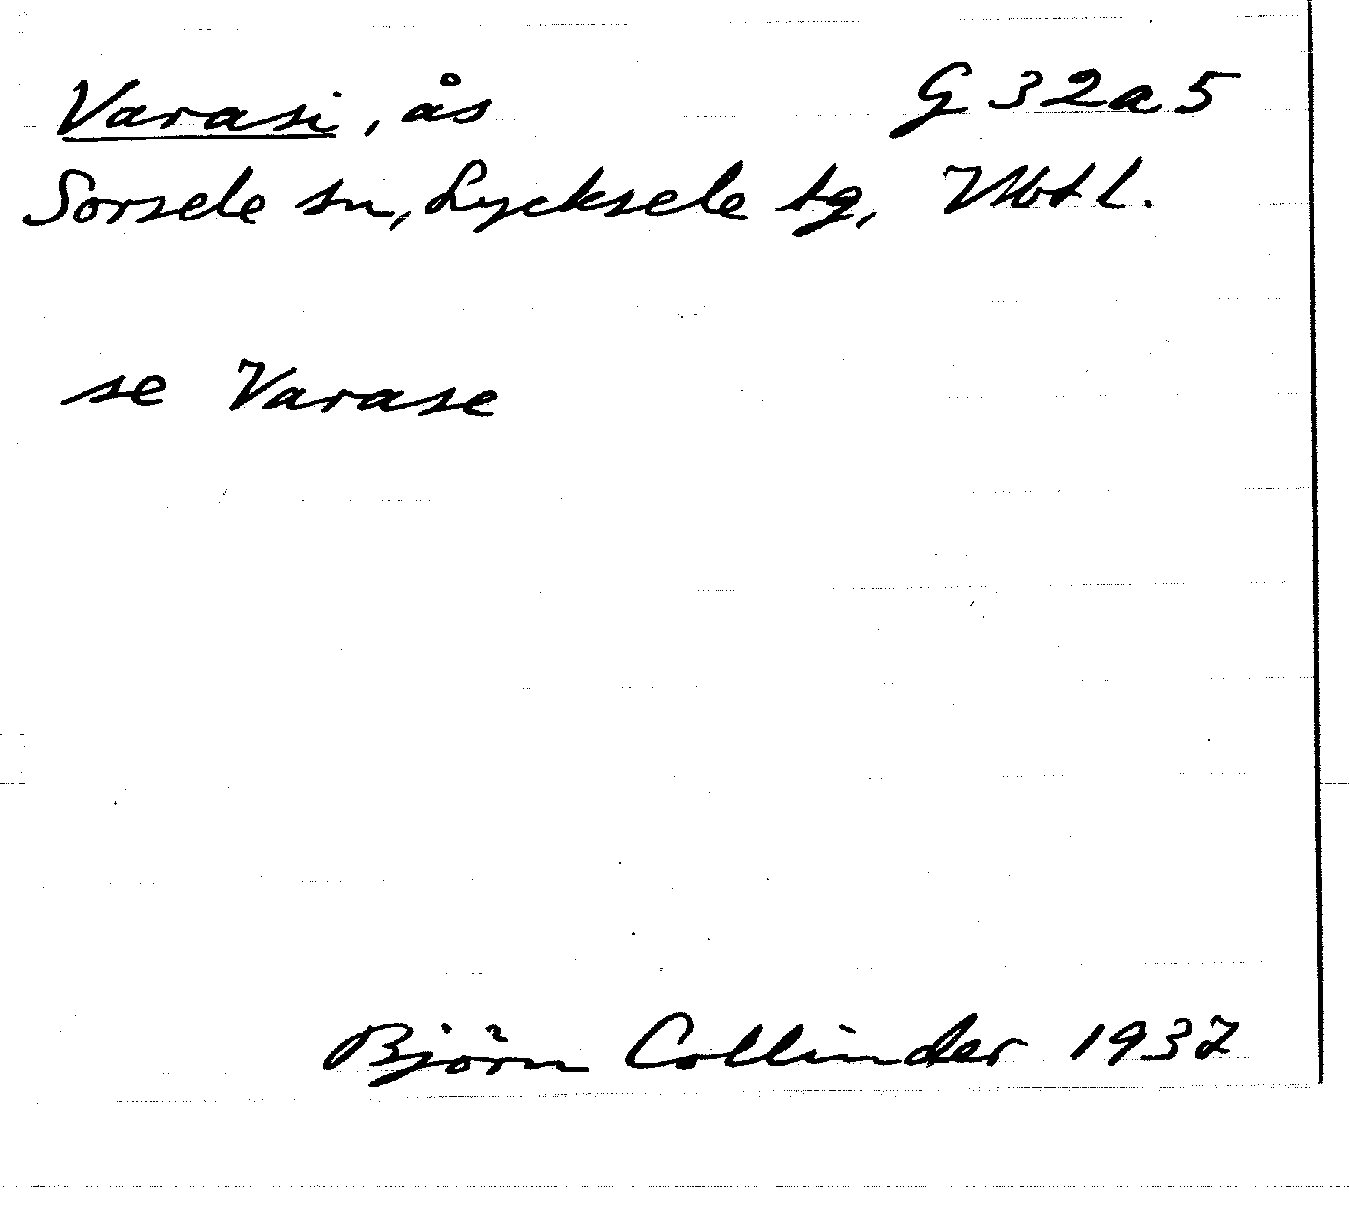 Varasi, ås G 32a5
Sorsele sn, Lycksele tg, Vbtl.
se Varase
Björn Collinder 1937